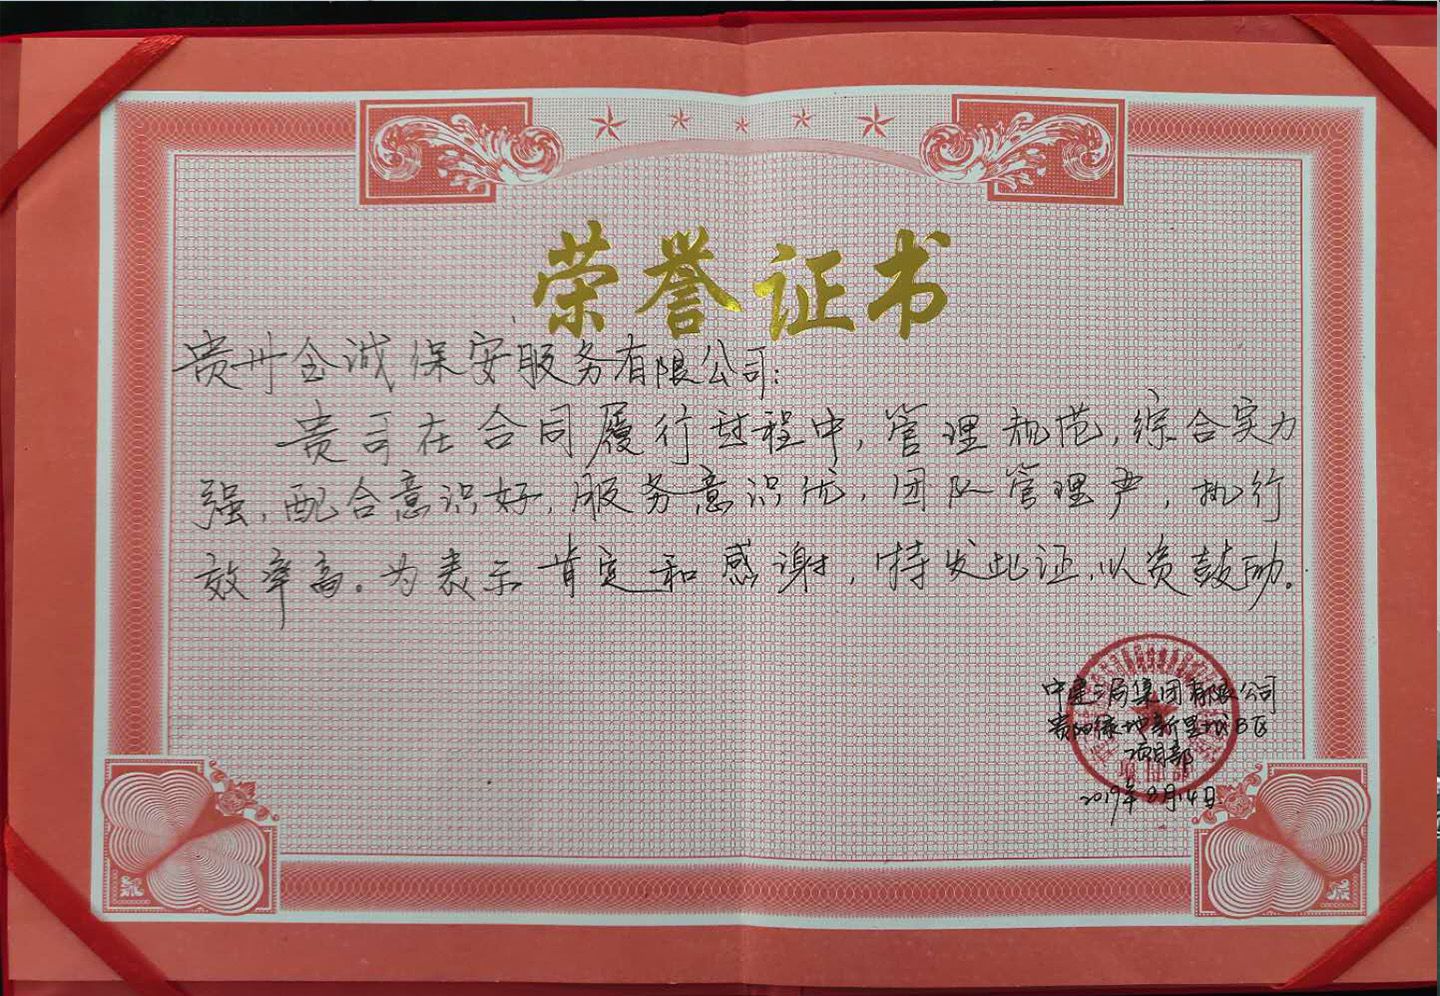 荣誉证书
贵州金诚保安服务有限公司:
贵司在合同履行过程中,管理规范,综合实力
强,配合意识好,服务意识优,团队管理严,执行
效率高。为表示肯定和感谢,特发此证,以资鼓励。
中建三局集团有限公司
贵阳绿地新里城B区
项目部
2019年8月14日